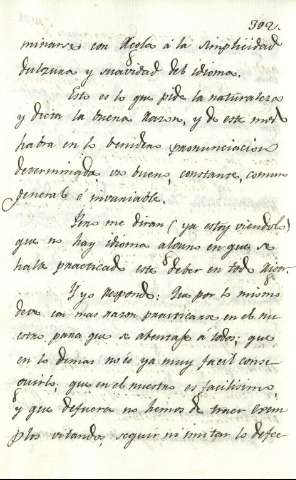 392.
minarse con regla á la simplicidad
dulzura y suavidad del idioma.
Esto es lo que pide la naturaleza
y dicta la buena razon, y de este modo
habra en lo benidero pronunciacion
determinada vso bueno, constante, comun
general é invariable.
Pero me diran (ya estoy viendolo)
que no hay idioma alguno en que se
halle practicado este deber en todo rigor.
Y yo respondo: Que por lo mismo
deve con mas razon practicarse en el nu
estro para que se abentaje á todos; que
en lo demas no le es ya muy facil conse
guirlo; que en el nuestro es facilisimo,
y que defuera no hemos de traer exem
plos vitandos, seguir ni imitar lo defec